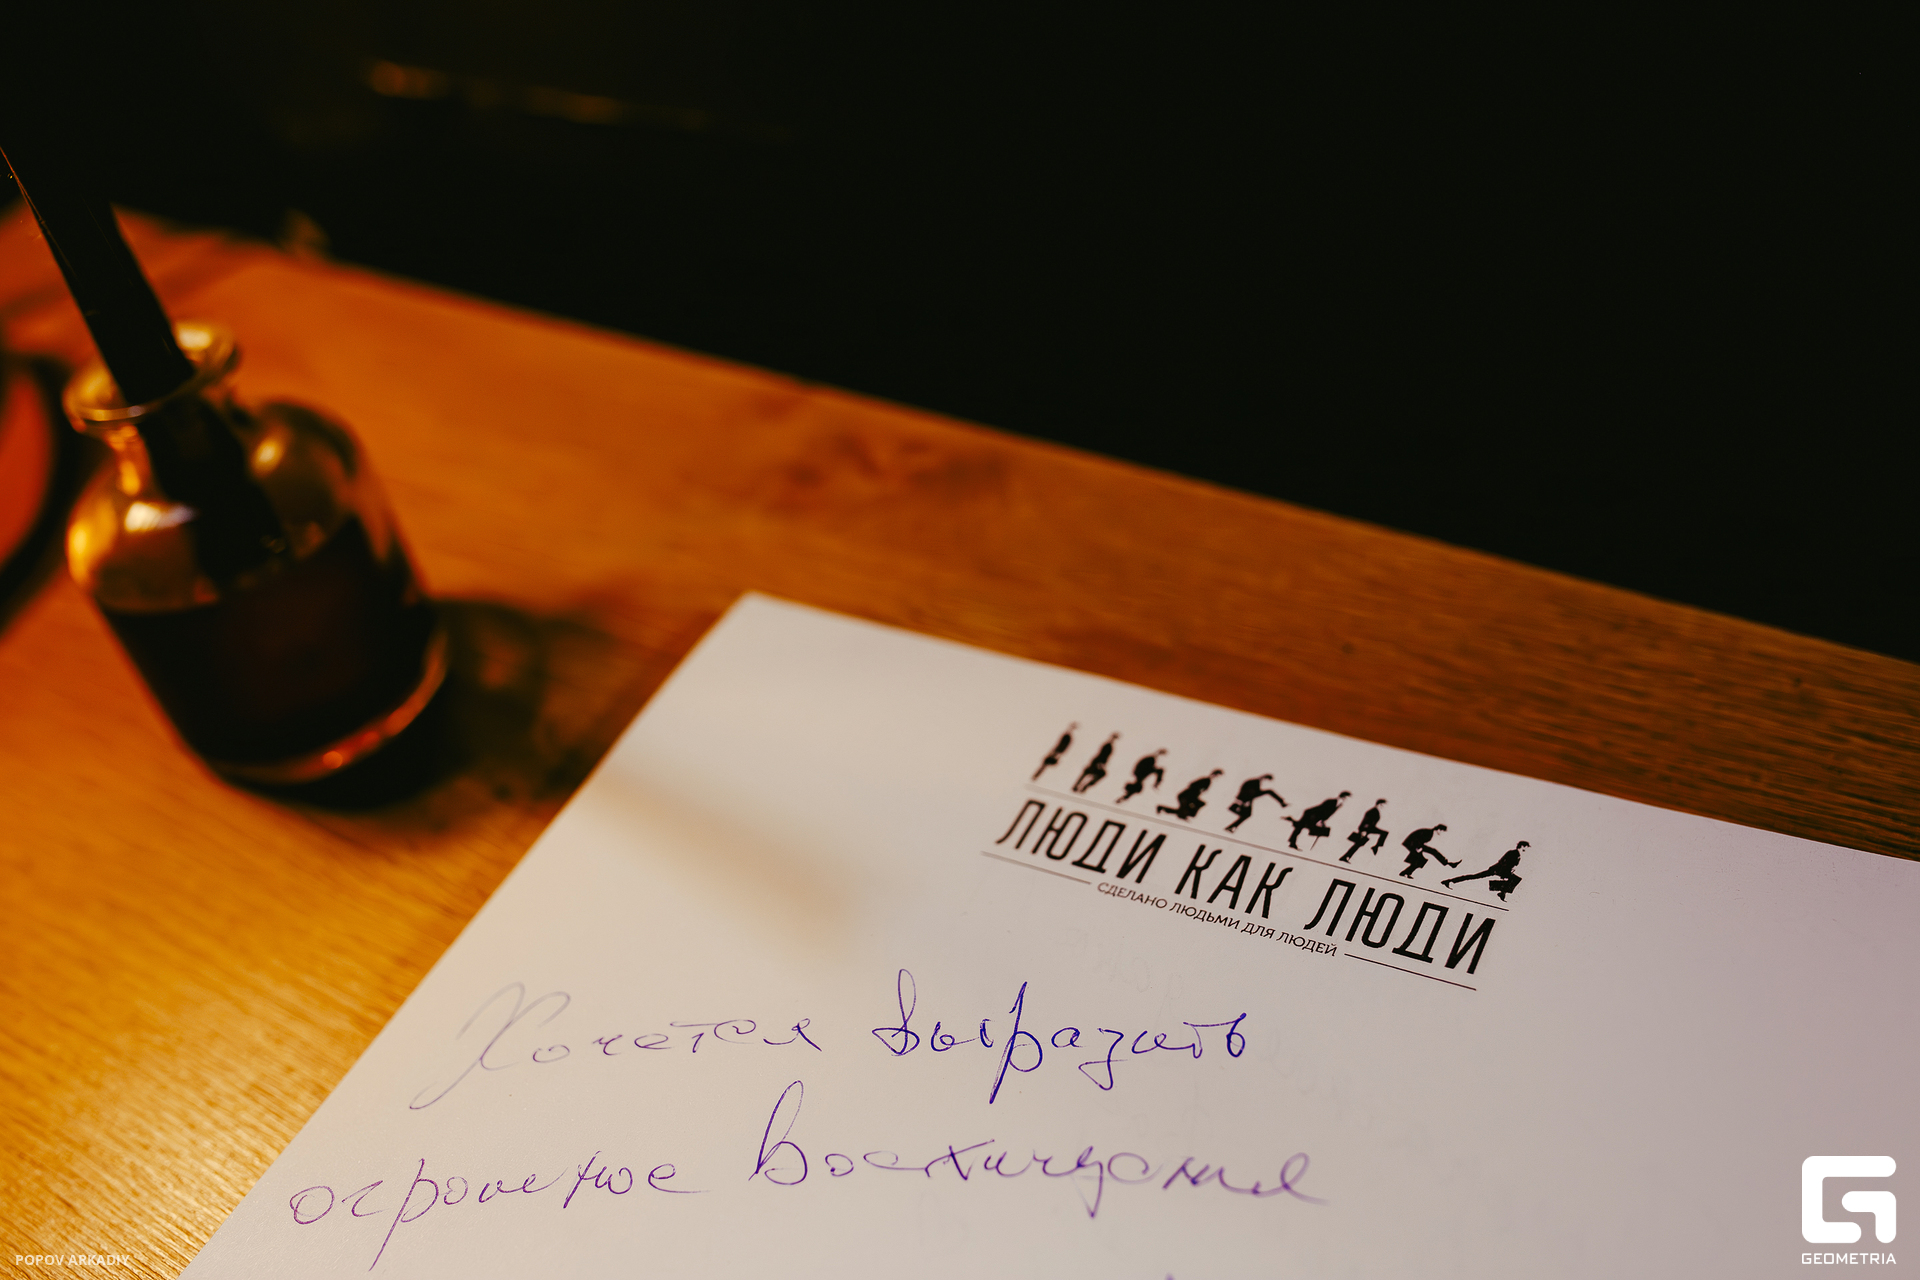 ЛЮДИ КАК ЛЮДИ
СДЕЛАНО ЛЮДЬМИ ДЛЯ ЛЮДЕЙ
Хочется выразить
огромное восхищения
POPOV ARKADIY
GEOMETRIA